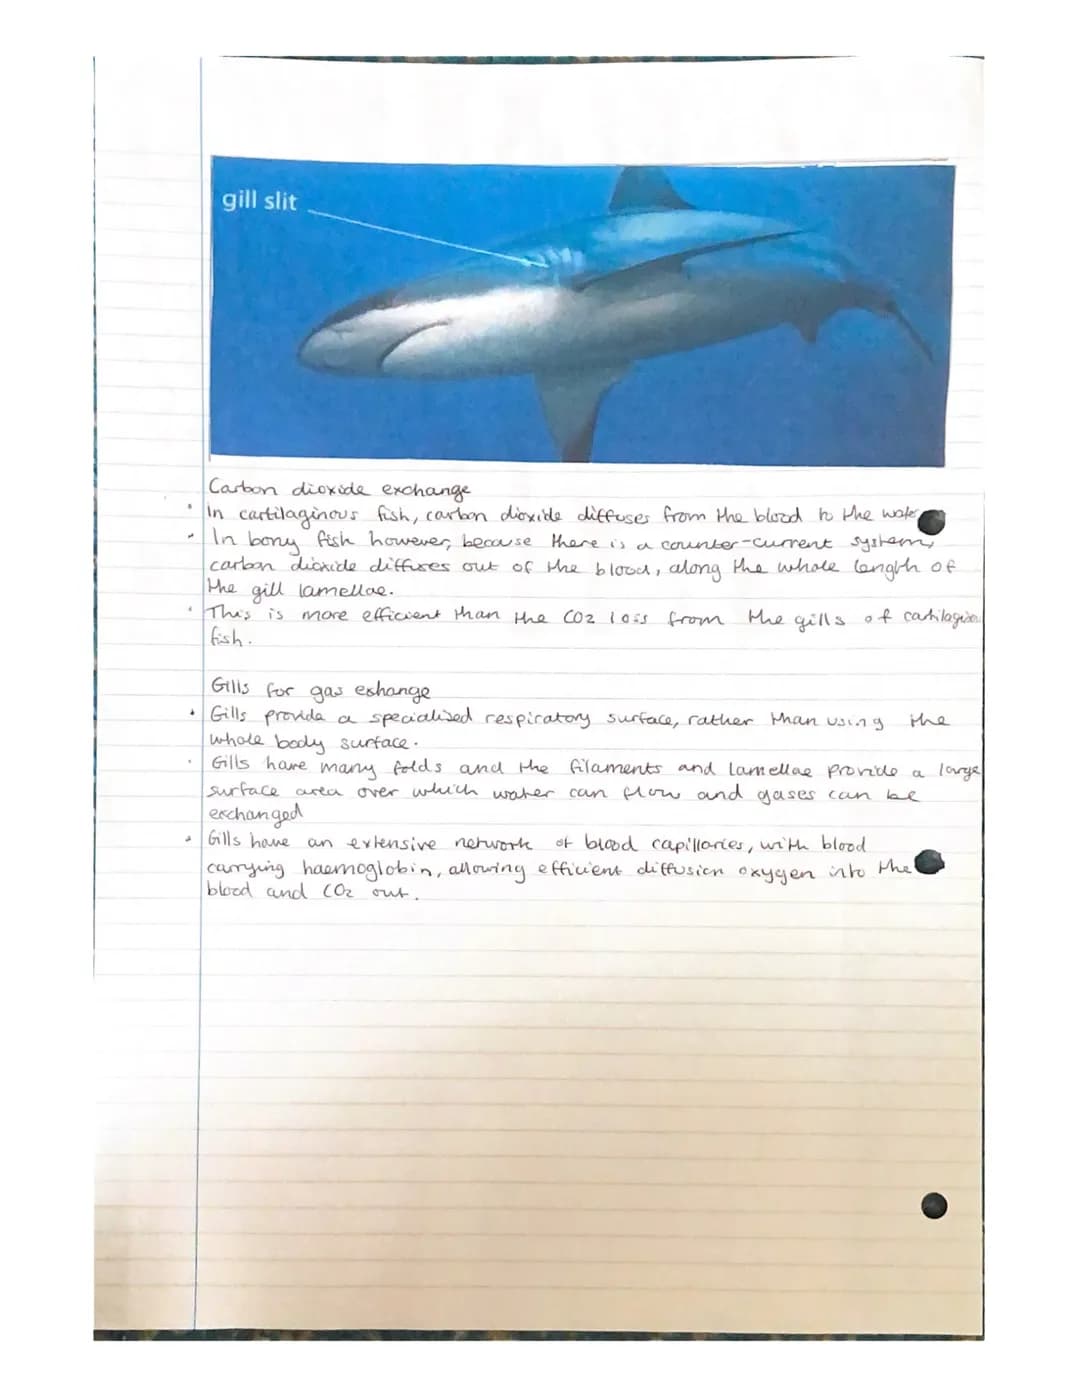 gill slit
Carbon dioxide exchange
• In cartilaginous fish, carbon dioxide diffuses from the blood to the water
• In bony fish however, because there is a counter-current system,
carbon dioxide diffuses out of the blood, along the whole length of
the gill lamellae.
• This is more efficient than the CO2 loss from the gills of cartilaginou
fish.
Gills for gas eshange
• Gills provide a specialised respiratory surface, rather than using the
whole body surface.
• Gills have many folds and the filaments and lamellae provide a large
surface area over which water can flow and gases can be
exchanged
• Gills have an extensive network of blood capillaries, with blood
carrying haemoglobin, allowing efficient diffusion oxygen into the
blood and CO2 out.